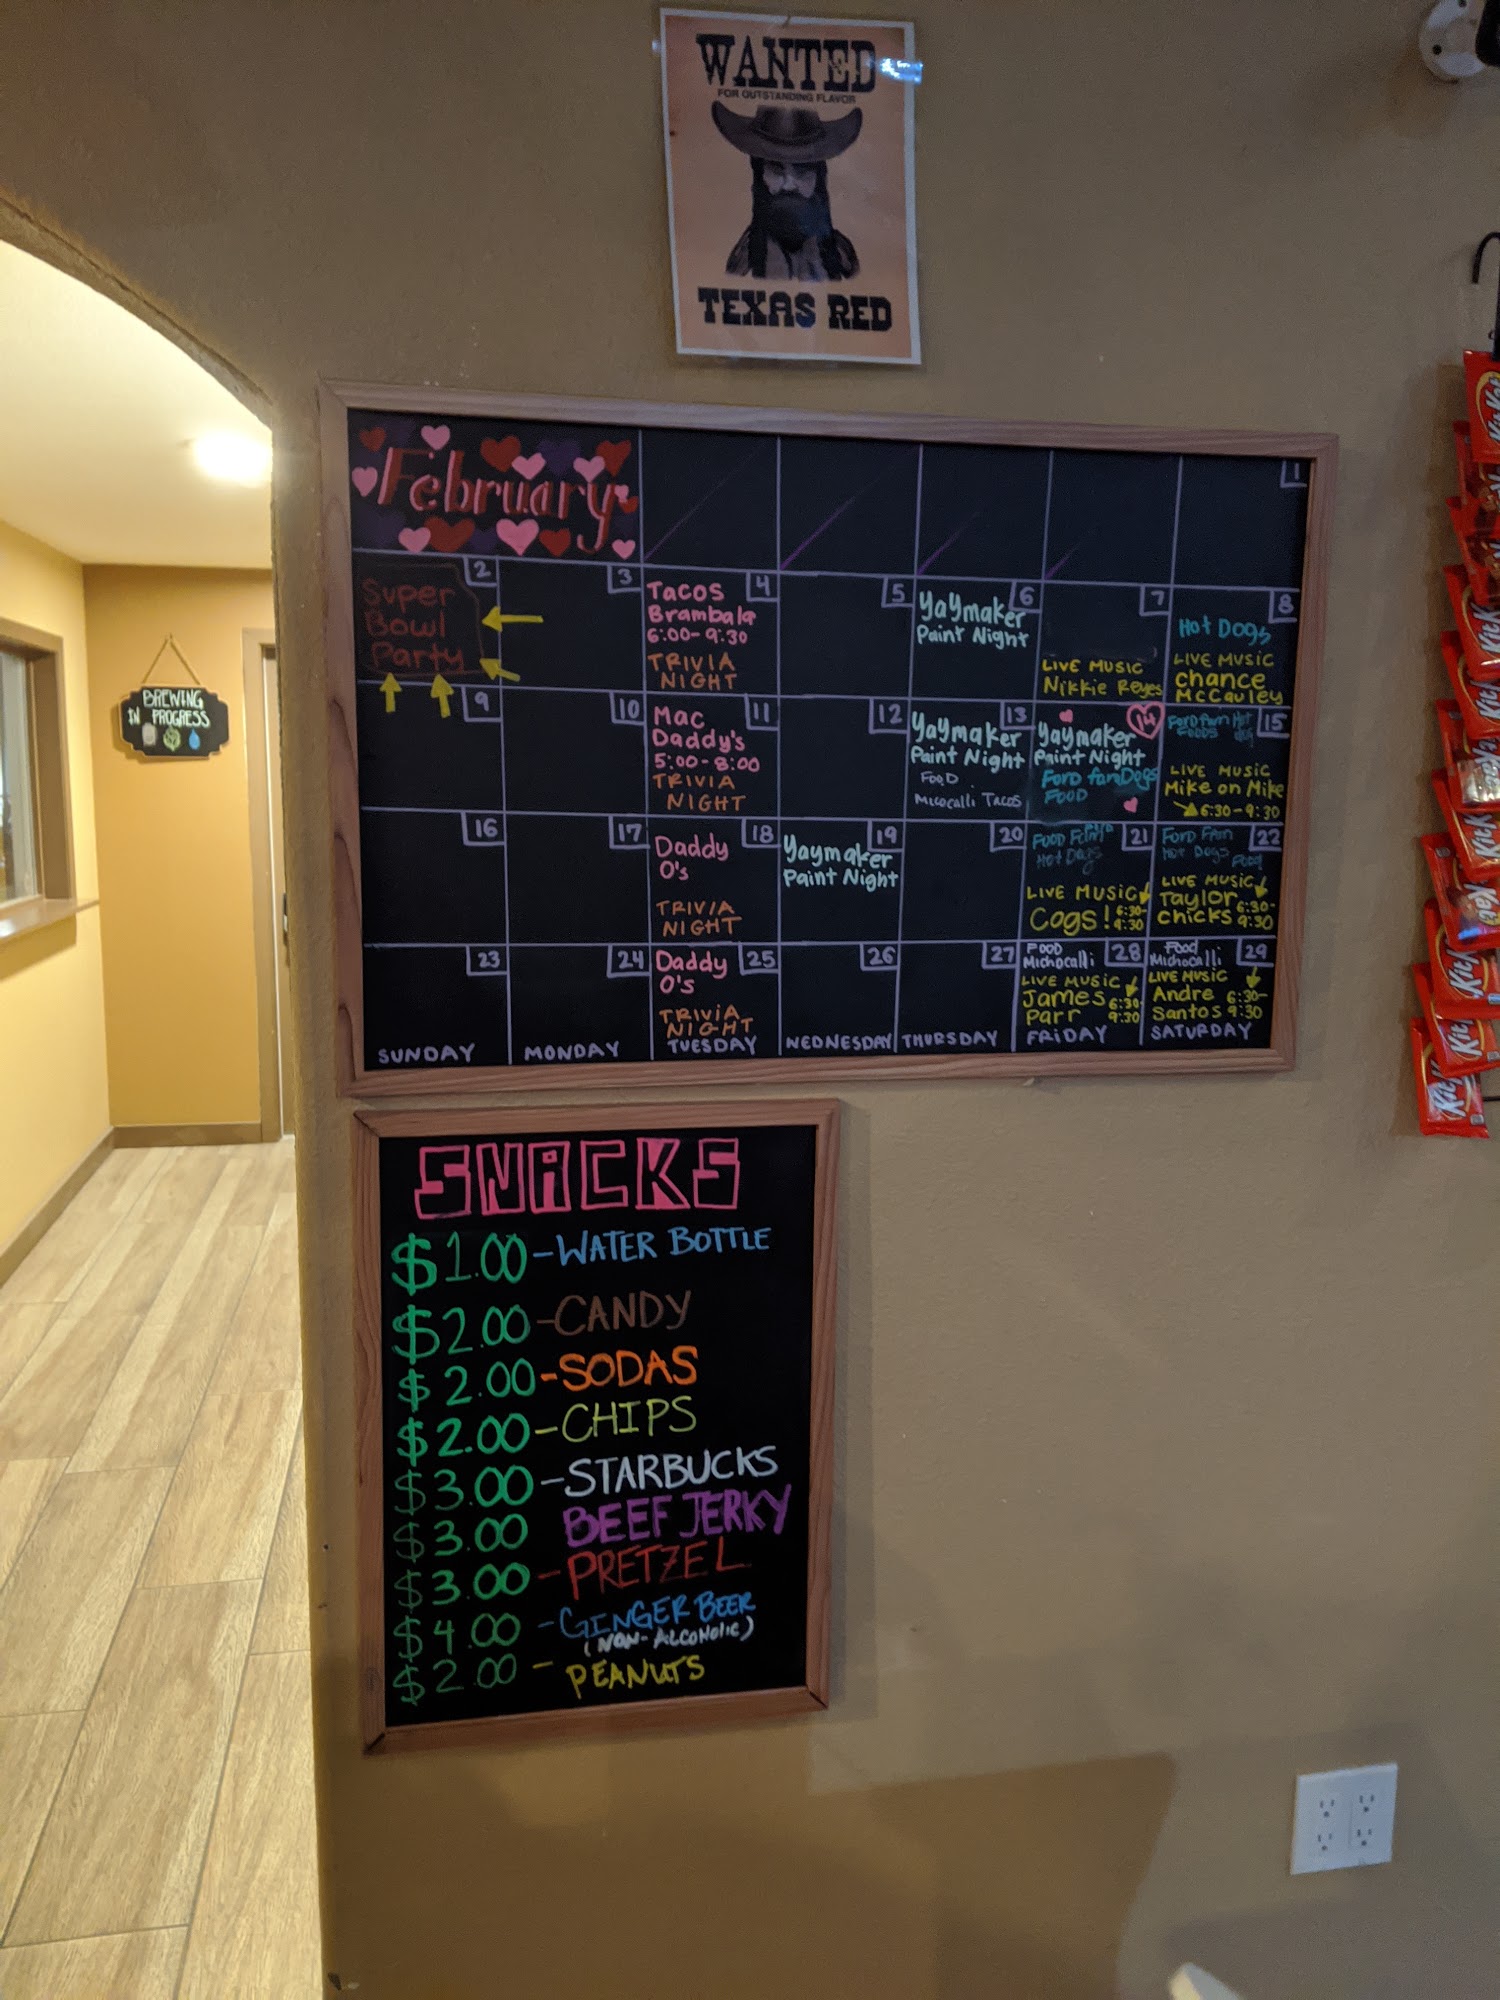 WANTED
FOR OUTSTANDING FLAVOR
TEXAS RED
February
1
2
Super
Bowl
Party
3
4
Tacos
Brambala
6:00-9:30
TRIVIA
NIGHT
5
6
Yaymaker
Paint Night
7
LIVE MUSIC
Nikkie Reyes
8
Hot Dogs
LIVE MUSIC
chance
McCauley
9
10
11
Mac
Daddy's
5:00-8:00
TRIVIA
NIGHT
12
13
Yaymaker
Paint Night
FOOD
Micocalli Tacos
14
Yaymaker
Paint Night
Ford fan Dogs
FOOD
15
Ford Fam Hot
LIVE MUSIC
Mike on Mike
6:30-9:30
16
17
18
Daddy
O's
TRIVIA
NIGHT
19
Yaymaker
Paint Night
20
21
Hot Dogs
LIVE MUSIC
Cogs! 6:30-
9:30
22
Ford Fam
Hot Dogs Food
LIVE MUSIC
Taylor 6:30-
chicks 9:30
23
24
25
Daddy
O's
TRIVIA
NIGHT
26
27
28
FOOD
Michocalli
LIVE MUSIC
James 6:30-
Parr 9:30
29
Food
Michocalli
LIVE MUSIC
Andre 6:30-
Santos 9:30
SUNDAY MONDAY TUESDAY WEDNESDAY THURSDAY FRIDAY SATURDAY
BREWING
IN PROGRESS
SNACKS
$1.00-WATER BOTTLE
$2.00-CANDY
$2.00-SODAS
$2.00-CHIPS
$3.00-STARBUCKS
$3.00 BEEF JERKY
$3.00-PRETZEL
$4.00-GINGER BEER
(NON-ALCOHOLIC)
$2.00-PEANUTS
KitKat
KitKat
KitKat
KitKat
KitKat
KitKat